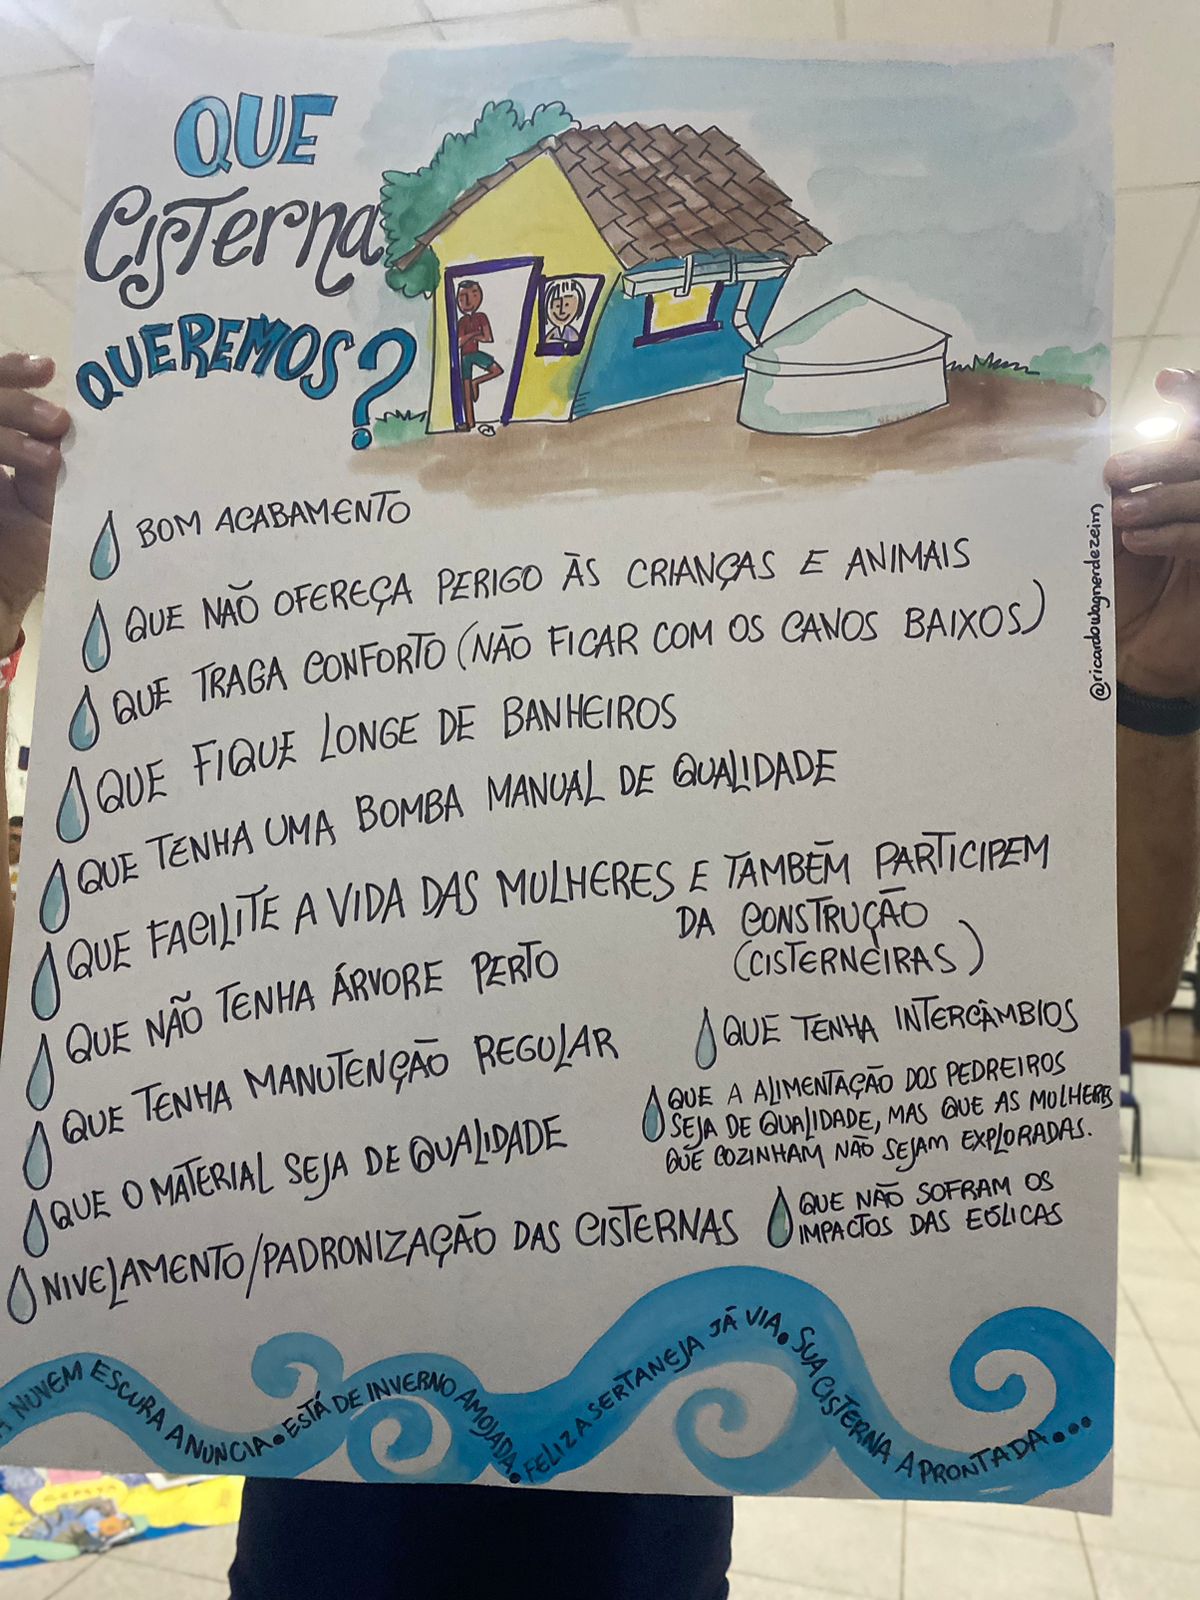 QUE
CISTERNA
QUEREMOS?
BOM ACABAMENTO
QUE NÃO OFEREÇA PERIGO ÀS CRIANÇAS E ANIMAIS
QUE TRAGA CONFORTO (NÃO FICAR COM OS CANOS BAIXOS)
QUE FIQUE LONGE DE BANHEIROS
QUE TENHA UMA BOMBA MANUAL DE QUALIDADE
QUE FACILITE A VIDA DAS MULHERES E TAMBÉM PARTICIPEM
DA CONSTRUÇÃO
(CISTERNEIRAS)
QUE NÃO TENHA ÁRVORE PERTO
QUE TENHA MANUTENÇÃO REGULAR
QUE O MATERIAL SEJA DE QUALIDADE
NIVELAMENTO/PADRONIZAÇÃO DAS CISTERNAS
QUE TENHA INTERCÂMBIOS
QUE A ALIMENTAÇÃO DOS PEDREIROS
SEJA DE QUALIDADE, MAS QUE AS MULHERES
QUE COZINHAM NÃO SEJAM EXPLORADAS.
QUE NÃO SOFRAM OS
IMPACTOS DAS EÓLICAS
A NUVEM ESCURA ANUNCIA. ESTÁ DE INVERNO AMOJADA. FELIZ A SERTANEJA JÁ VIA. SUA CISTERNA APRONTADA...
@ricardowagnerdezeim